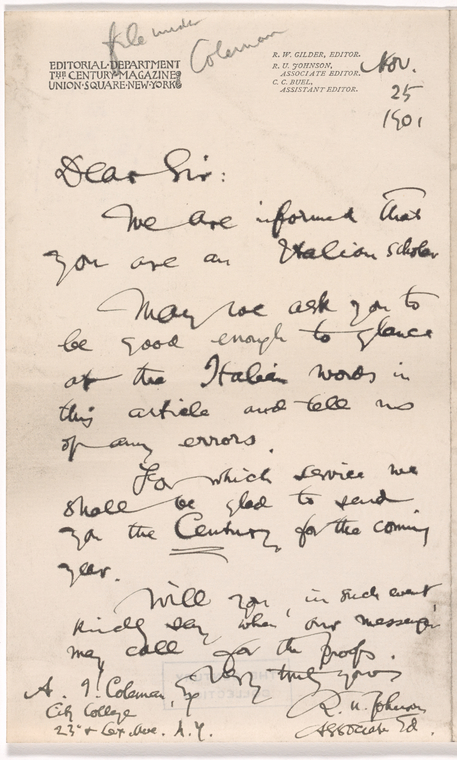 file under
Coleman
EDITORIAL·DEPARTMENT
THE CENTURY MAGAZINE
UNION·SQUARE·NEW·YORK
R. W. GILDER, EDITOR.
R. U. JOHNSON,
ASSOCIATE EDITOR.
C. C. BUEL,
ASSISTANT EDITOR.
Nov.
25
1901
Dear Sir:
We are informed that
you are an Italian scholar
May we ask you to
be good enough to glance
at the Italian words in
this article and tell us
of any errors.
For which service we
shall be glad to send
you the Century for the coming
year.
Will you, in such event
kindly say when our messenger
may call for the proofs.
Very truly yours
R. U. Johnson
Associate Ed.
A. I. Coleman, Esq
City College
23d & Lex. Ave. N.Y.